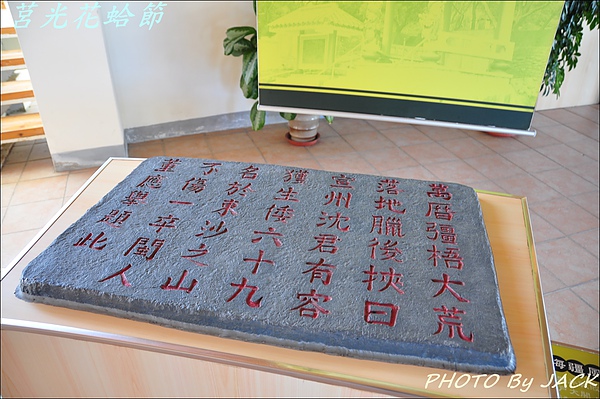 莒光花蛤節
萬曆彊梧大荒
落地臘後挾日
宣州沈君有容
獲生倭六十九
名於東沙之山
不傷一卒閩人
董應舉題此
PHOTO By JACK